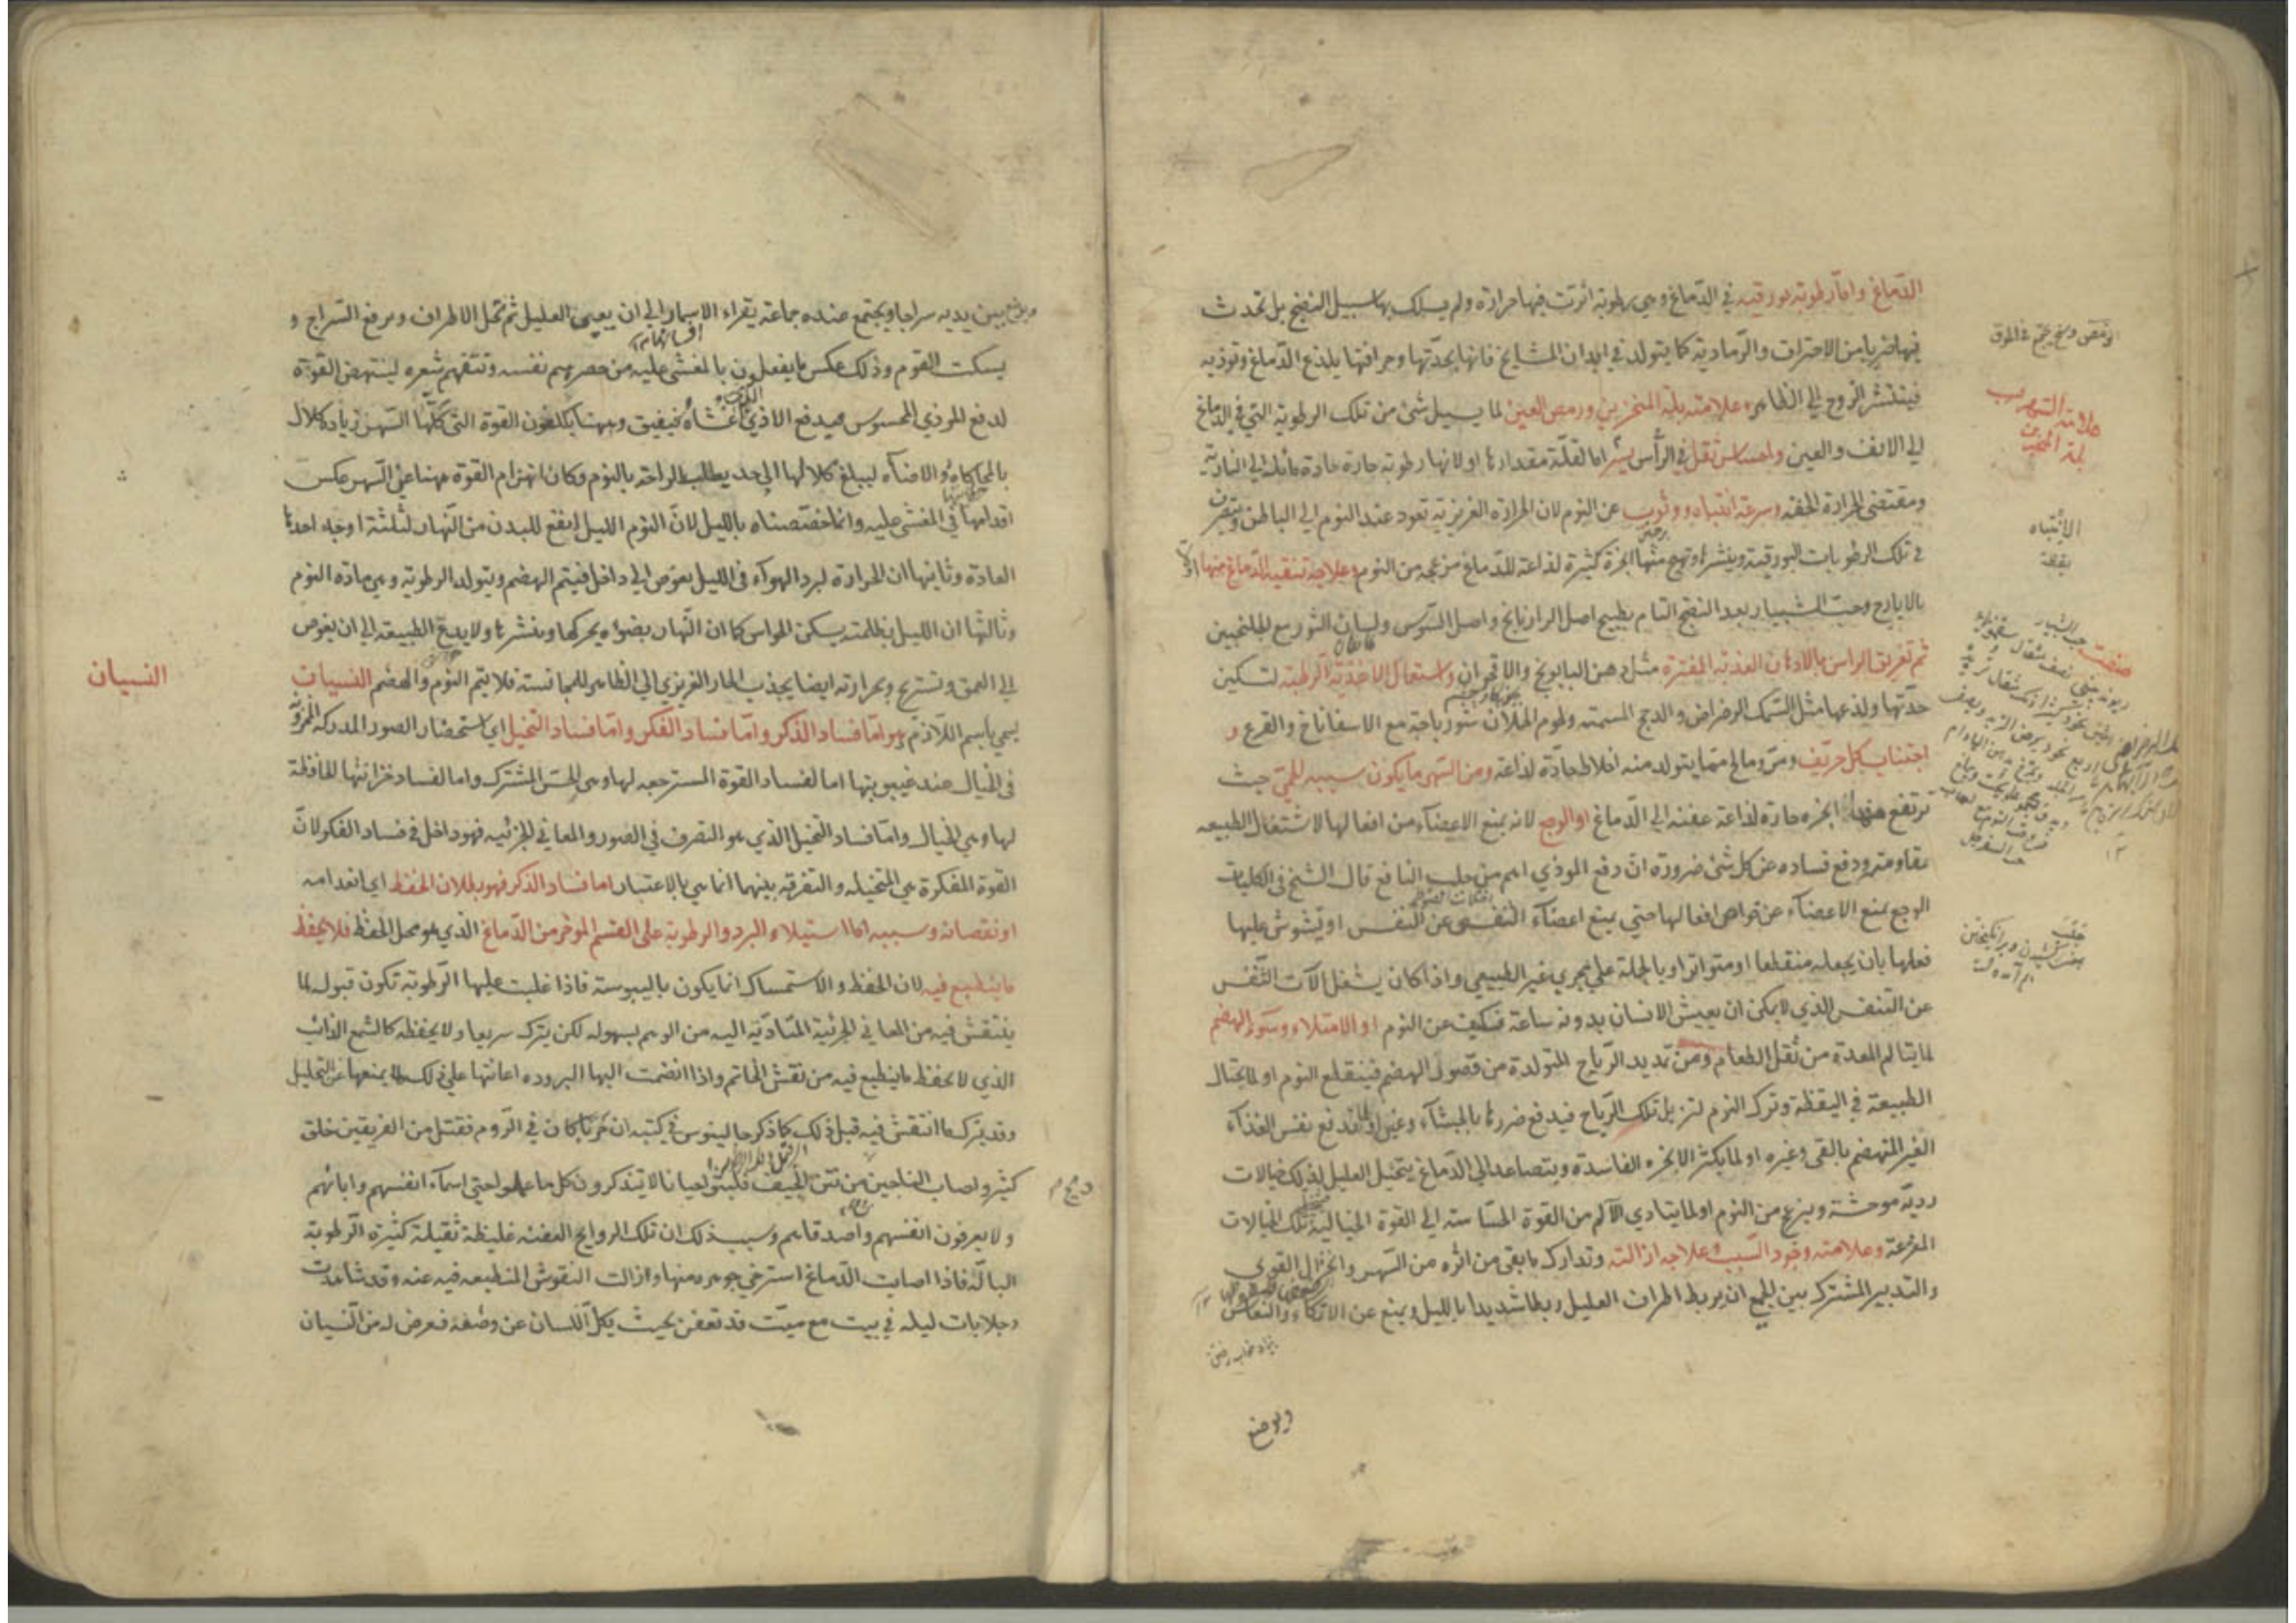 الدّماغ وامّا رطوبة بورقية في الدّماغ وهي رطوبة اثرت فيها حرارة ولم يسلك بها سبيل النضج بل تحدث
فيها ضربا من الاحتراق والرّمادية كما يتولد في ابدان المشايخ فانها بحدّتها وحرافتها يلذع الدّماغ وتوذيه
فينتشر الروح الي الظاهر وعلامته بلة المنخرين ورمص العين لما يسيل شئ من تلك الرطوبة التي في الدماغ
الي الانف والعين واحساس ثقل في الرأس يسير اما لقلّة مقدارها او لانها رطوبة حارة حادة مائلة الي النارية
ومقتضي الحرارة الخفه وسرعة انتباه ووثوب عن النوم لان الحرارة الغريزية تعود عند النوم الي الباطن ويتصرف
في تلك الرطوبات البورقية وينشرها وتهيج منها ابخرة كثيرة لذاعة للدّماغ مزعجة من النوم وعلاجه تنقية الدّماغ منها
بالايارج وحبّ الشبيار بعد النضج التام بطبيخ اصل الرازيانج واصل السّوس ولسان الثور مع الجلنجبين
ثم تغريق الراس بالادهان العذبة المفترة مثل دهن البابونج والاقحوان واستعمال الاغذية الرطبة لتسكين
حدّتها ولذعها مثل السّمك الرضراض والدجج المسمنة ولحوم الحملان شورباجة مع الاسفاناخ والقرع و
اجتناب كل حرّيف ومرّ ومالح مما يتولد منه اخلاط حادّة لذاعة ومن السّهر ما يكون سببه الحمّي حيث
ترتفع منها ابخرة حارة لذاعة عفنة الي الدّماغ او الوجع لانه يمنع الاعضآء من افعالها لاشتغال الطبيعه
بمقاومته ودفع فساده عن كل شئ ضرورة انّ دفع الموذي اهم من جلب النافع قال الشيخ في الكليات
الوجع يمنع الاعضآء عن خواص افعالها حتي يمنع اعضآء التنفس عن التنفس او يشوش عليها
فعلها بان يجعله منقطعا او متواترا وبالجملة علي مجري غير الطبيعي واذا كان يشغل آلات التّنفس
عن التنفس الذي لا يمكن ان يعيش الانسان بدونه ساعة فكيف عن النوم او الامتلاء وسوء الهضم
لما يتالم المعدة من ثقل الطعام ومن تمديد الرّياح المتولدة من قصور الهضم فينقلع النوم او لما يحتال
الطبيعة في اليقظة وترك النوم لتزيل تلك الرّياح فيدفع ضررها بالجشآء وغيره او تدفع نفس الغذآء
الغير المنهضم بالقي وغيره او لما يكثر الابخره الفاسدة ويتصاعد الي الدّماغ يتخيل العليل لذلك خيالات
رديّة موحشة ويفزع من النوم او لما يتادي الالم من القوة الحسّاسة الي القوة الخيالية تلك الخيالات
المفزعة وعلامته وجود السّبب وعلاجه ازالته وتدارك ما بقي من اثره من السّهر وانحلال القوي
والتدبير المشترك بين الجميع ان يربط اطراف العليل ربطا شديدا بالليل ويمنع عن الاتكاء والنعاس
ويوضع
علامة السهر
بلة المنخرين
الانتباه
يقظة
صفت حب الشبيار
ويوضع بين يديه سراجا ويجتمع عنده جماعة يقراء الاسمار الي ان يعيى العليل ثم تحل الاطراف ويرفع السّراج و
يسكت القوم وذلك عكس ما يفعلون بالمغشي عليه من حصرهم نفسه ونتفهم شعره لينتهض القوة
لدفع الموذي المحسوس فيدفع الاذي اغشاه فيفيق وههنا يكلفون القوة التي كلّها السّهر زيادة كلال
بالمحاكاه والاضآءه ليبلغ كلالها الي حد يطلب الراحة بالنوم وكان انهزام القوة ههنا عن السّهر عكس
اقدامها في المغشي عليه وانما خصّصناه بالليل لانّ النوم الليل انفع للبدن من النّهار لثلثة اوجه احدها
العادة وثانيها ان الحرارة لبرد الهوآء في الليل يغوص الي داخل فيتم الهضم ويتولد الرطوبة وهي مادة النوم
وثالثها ان الليل بظلمته يسكن الحواس كما ان النّهار بضوءه يحركها وينشرها ولا يدع الطبيعة الي ان يغوص
الي العمق وتستريح وبحرارته ايضا يجذب الحار الغريزي الي الظاهر للمجانسة فلا يتم النوم والهضم النسيان
يسمي باسم اللّازم وهو امّا فساد الذكر وامّا فساد الفكر وامّا فساد التخيل اي استحضار الصور المدركة المخزونة
في الخيال عند غيبوبتها اما لفساد القوة المسترجعه لها وهي الحسّ المشترك واما لفساد خزانتها الحافظة
لها وهي الخيال وامّا فساد التخيل الذي هو التصرف في الصور والمعاني الجزئيه فهو داخل في فساد الفكر لانّ
القوة المفكرة هي المتخيله والتفرقة بينهما انما هي بالاعتبار اما فساد الذكر فهو بطلان الحفظ اي انعدامه
او نقصانه وسببه اما استيلاء البرد والرطوبة علي القسم الموخر من الدّماغ الذي هو محل الحفظ فلا يحفظ
ما ينطبع فيه لان الحفظ والاستمساك انما يكون باليبوسة فاذا غلبت عليها الرّطوبة تكون قبوله لما
ينتقش فيه من المعاني الجزئية المتادّية اليه من الوهم بسهولة لكن يترك سريعا ولا يحفظه كالشمع الذائب
الذي لا يحفظ ما ينطبع فيه من نقش الخاتم واذا انضمت اليها البرودة اعانتها علي ذلك لما يمنعها عن التحليل
وقد يترك ما انتقش فيه قبل ذلك كما ذكر جالينوس في كتبه ان حربا كان في الرّوم فقتل من الفريقين خلق
كثير واصاب الناجين من نتن الجيف فلبثوا احيانا لا يتذكرون كل ما علموا حتي اسمآء انفسهم وابائهم
ولا يعرفون انفسهم واصدقاءهم وسبب ذلك ان تلك الروايح العفنه غليظة ثقيلة كثيرة الرّطوبة
البالّة فاذا اصابت الدّماغ استرخي جوهره منها وازالت النقوش المنطبعه فيه عنه وقد شاهدت
رجلا بات ليلة في بيت مع ميّت قد تعفن بحيث يكل اللسان عن وصفه فعرض له من النّسيان
النسيان